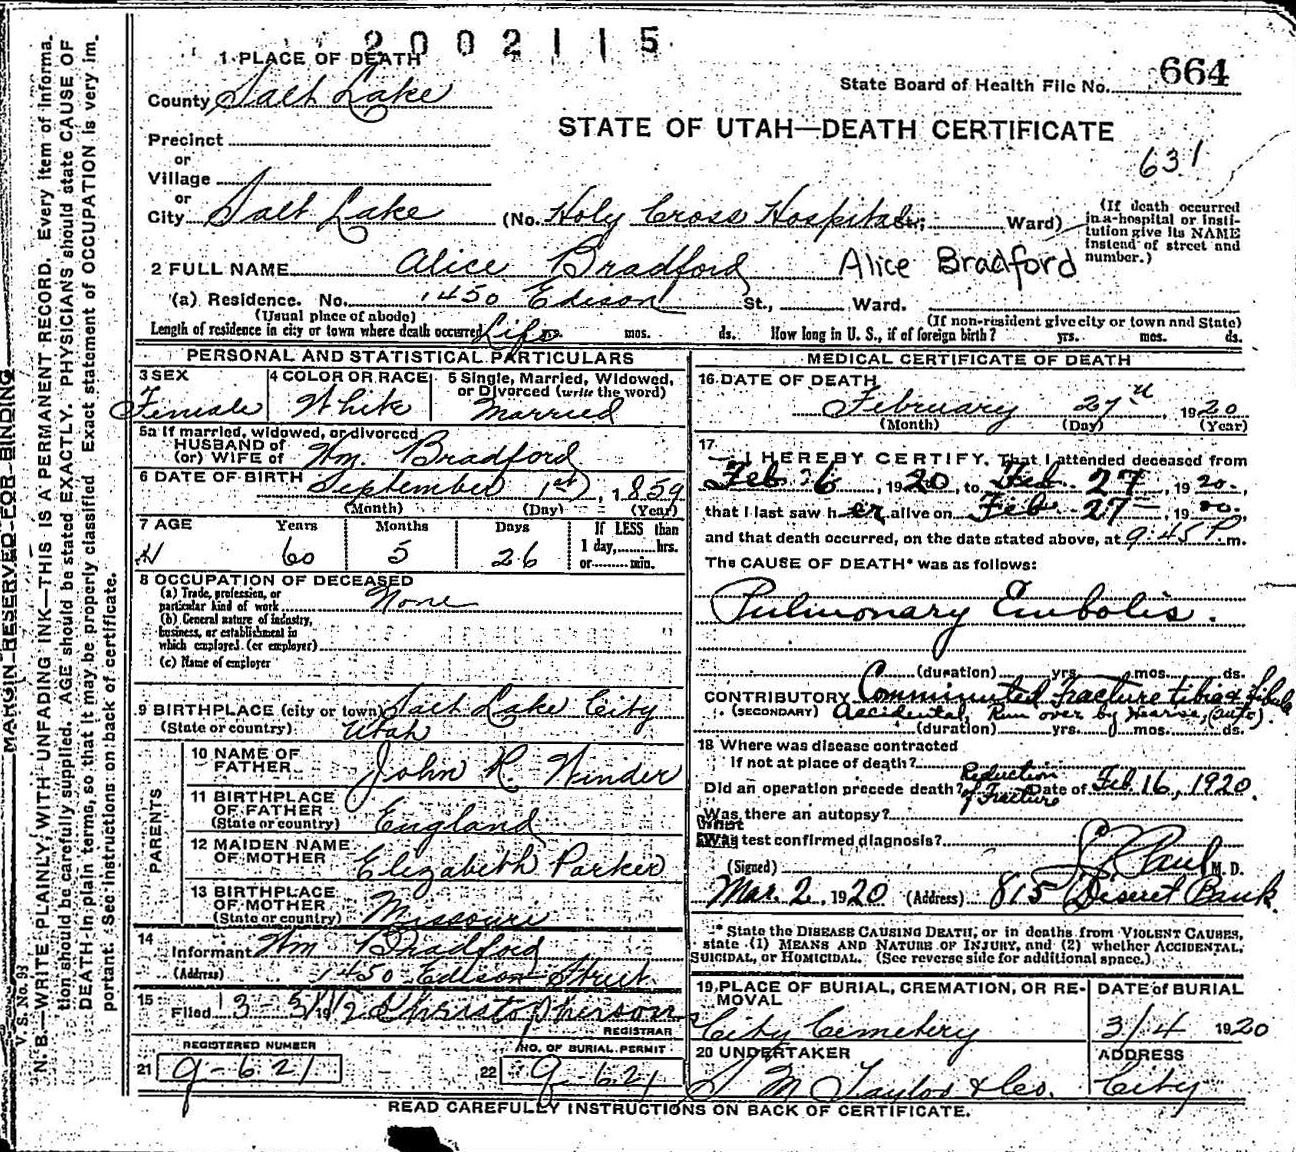 2002115
1 PLACE OF DEATH
State Board of Health File No. 664
County Salt Lake
STATE OF UTAH—DEATH CERTIFICATE
631
Precinct
or
Village
or
City Salt Lake (No. Holy Cross Hospital St.; Ward)
(If death occurred in a hospital or institution give its NAME instead of street and number.)
2 FULL NAME Alice Bradford Alice Bradford
(a) Residence. No. 1450 Edison St., Ward.
(Usual place of abode) (If non-resident give city or town and State)
Length of residence in city or town where death occurred Life yrs. mos. ds. How long in U. S., if of foreign birth? yrs. mos. ds.
PERSONAL AND STATISTICAL PARTICULARS
3 SEX 4 COLOR OR RACE 5 Single, Married, Widowed, or Divorced (write the word)
Female White Married
5a If married, widowed, or divorced
HUSBAND of
(or) WIFE of Wm. Bradford
6 DATE OF BIRTH September 1st, 1859
(Month) (Day) (Year)
7 AGE Years Months Days If LESS than
1 day, hrs.
or min.
60 5 26
8 OCCUPATION OF DECEASED
(a) Trade, profession, or
particular kind of work None
(b) General nature of industry,
business, or establishment in
which employed (or employer)
(c) Name of employer
9 BIRTHPLACE (city or town) Salt Lake City
(State or country) Utah
PARENTS
10 NAME OF FATHER John R. Winder
11 BIRTHPLACE OF FATHER
(State or country) England
12 MAIDEN NAME OF MOTHER Elizabeth Parker
13 BIRTHPLACE OF MOTHER
(State or country) Missouri
14
Informant Wm Bradford
(Address) 1450 Edison Street
15
Filed Christopherson
REGISTRAR
REGISTERED NUMBER NO. OF BURIAL PERMIT
21 9-621 22 9-621
MEDICAL CERTIFICATE OF DEATH
16 DATE OF DEATH
February 27th, 1920
(Month) (Day) (Year)
17
I HEREBY CERTIFY, That I attended deceased from
Feb 6, 1920, to Feb. 27, 1920.,
that I last saw her alive on Feb 27, 1920.,
and that death occurred, on the date stated above, at 9:45 P.m.
The CAUSE OF DEATH* was as follows:
Pulmonary Embolis.
(duration) yrs. mos. ds.
CONTRIBUTORY Comminuted fracture tibia & fibula
(SECONDARY) Accidental, Run over by Hearse, (auto).
(duration) yrs. mos. ds.
18 Where was disease contracted
If not at place of death?
Did an operation precede death? Reduction of Fracture Date of Feb. 16, 1920.
Was there an autopsy?
What test confirmed diagnosis?
(Signed) Paul M. D.
Mar. 2, 1920 (Address) 815 Deseret Bank
* State the DISEASE CAUSING DEATH, or in deaths from VIOLENT CAUSES,
state (1) MEANS AND NATURE OF INJURY, and (2) whether ACCIDENTAL,
SUICIDAL, or HOMICIDAL. (See reverse side for additional space.)
19 PLACE OF BURIAL, CREMATION, OR REMOVAL DATE of BURIAL
City Cemetery 3/4 1920
20 UNDERTAKER ADDRESS
S. M. Taylor & Co. City
READ CAREFULLY INSTRUCTIONS ON BACK OF CERTIFICATE.
MARGIN RESERVED FOR BINDING
V. S. No. 93
N. B.—WRITE PLAINLY, WITH UNFADING INK—THIS IS A PERMANENT RECORD. Every item of informa-
tion should be carefully supplied. AGE should be stated EXACTLY. PHYSICIANS should state CAUSE OF
DEATH in plain terms, so that it may be properly classified. Exact statement of OCCUPATION is very im-
portant. See instructions on back of certificate.